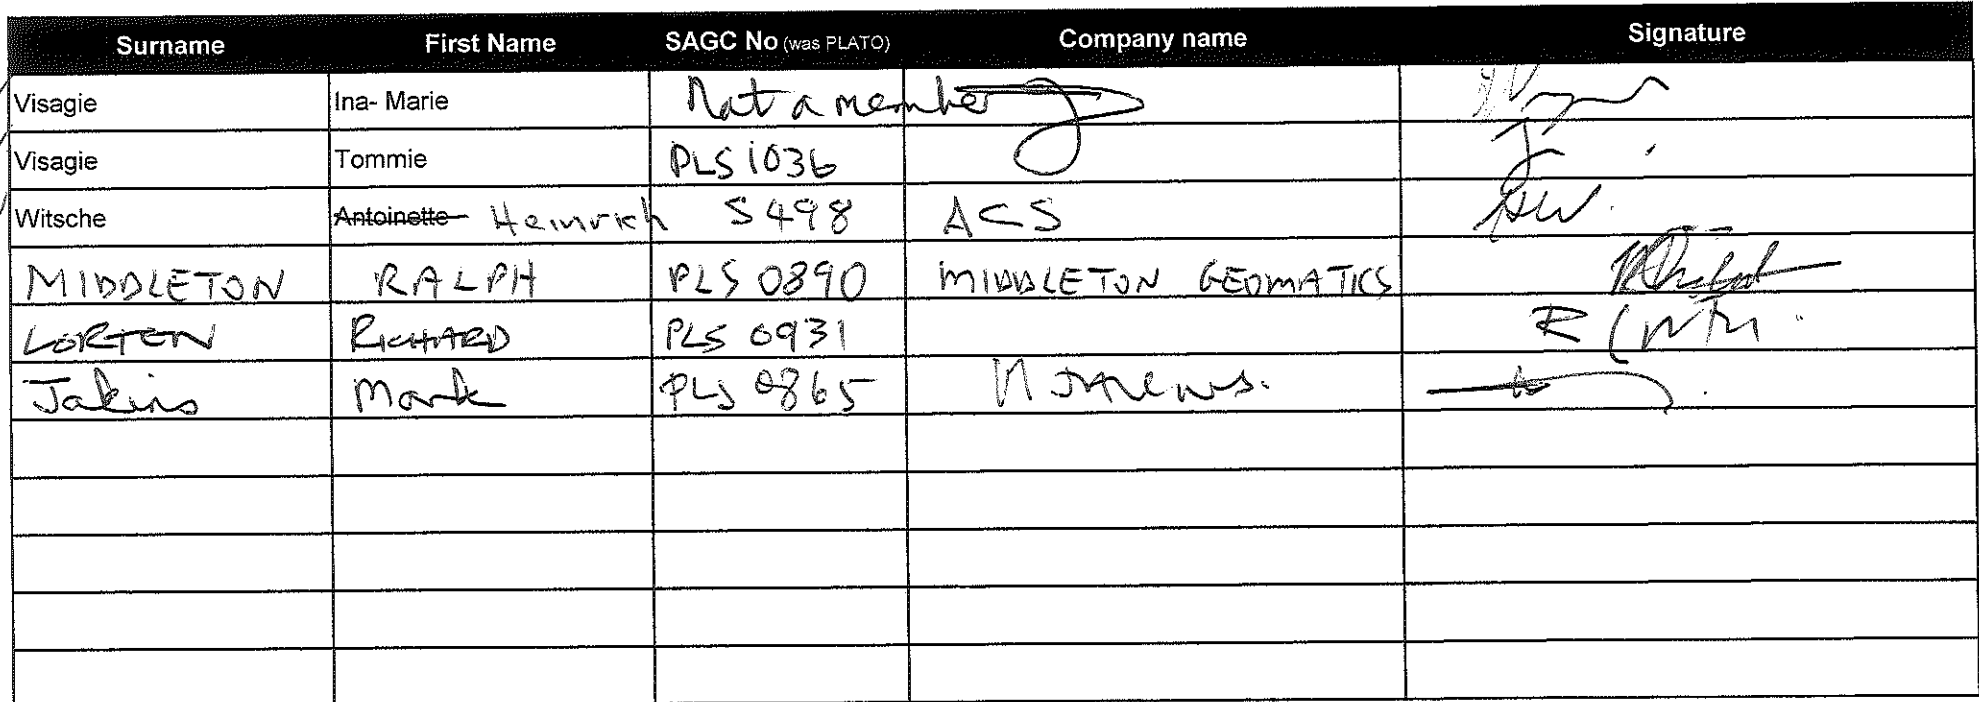 Surname First Name SAGC No (was PLATO) Company name Signature
Visagie Ina- Marie Not a member
Visagie Tommie PLS 1036
Witsche Antoinette Heinrich S498 ACS
MIDDLETON RALPH PLS 0890 MIDDLETON GEOMATICS
LORTEN RICHARD PLS 0931
Jakins Mark PLS 0865